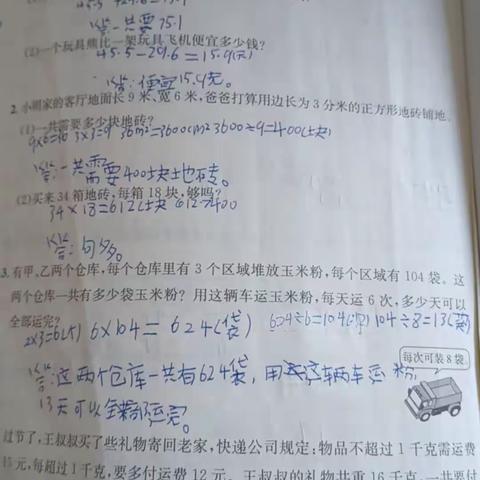 答:一共要75.1
(2)一个玩具熊比一架玩具飞机便宜多少钱?
45.5-29.6=15.9(元)
答:便宜15.9元。
2.小明家的客厅地面长9米,宽6米,爸爸打算用边长为3分米的正方形地砖铺地。
(1)一共需要多少块地砖?
3×3=9 3600÷9=400(块)
答:一共需要400块地砖。
(2)买来34箱地砖,每箱18块,够吗?
34×18=612(块) 612>400
答:够。
3.有甲、乙两个仓库,每个仓库里有3个区域堆放玉米粉,每个区域有104袋。这
两个仓库一共有多少袋玉米粉?用这辆车运玉米粉,每天运6次,多少天可以
全部运完?
2×3=6(个) 6×104=624(袋) 624÷6=104(次) 104÷8=13(天)
每次可装8袋
答:这两个仓库一共有624袋,用这车辆运粉,
13天可以全部运完。
过节了,王叔叔买了些礼物寄回老家,快递公司规定:物品不超过1千克需运费
15元,每超过1千克,要多付运费12元。王叔叔的礼物共重16千克,一共要付